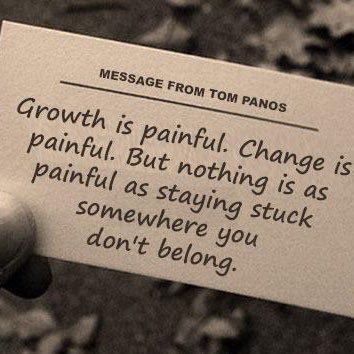 MESSAGE FROM TOM PANOS
Growth is painful. Change is
painful. But nothing is as
painful as staying stuck
somewhere you
don't belong.